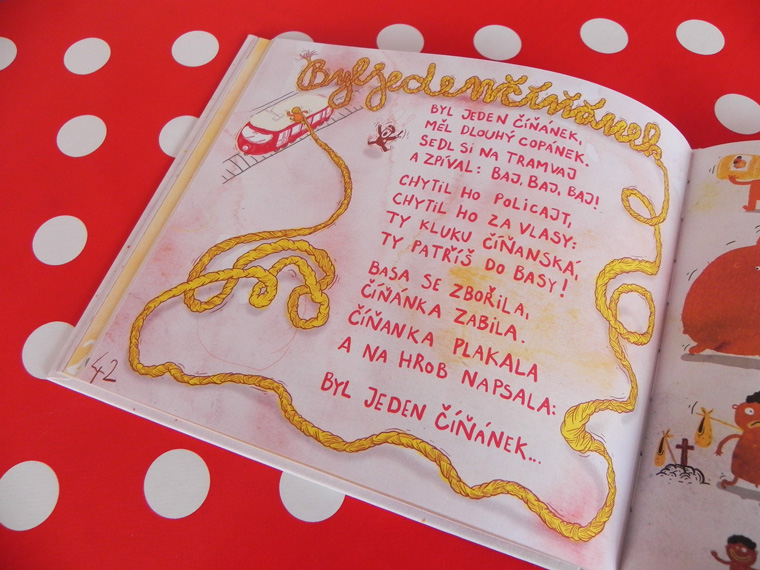 Byl jeden číňánek
BYL JEDEN ČÍŇÁNEK,
MĚL DLOUHÝ COPÁNEK.
SEDL SI NA TRAMVAJ
A ZPÍVAL: BAJ, BAJ, BAJ!
CHYTIL HO POLICAJT,
CHYTIL HO ZA VLASY:
TY KLUKU ČÍŇANSKÁ,
TY PATŘÍŠ DO BASY!
BASA SE ZBOŘILA,
ČÍŇÁNKA ZABILA.
ČÍŇANKA PLAKALA
A NA HROB NAPSALA:
BYL JEDEN ČÍŇÁNEK...
42